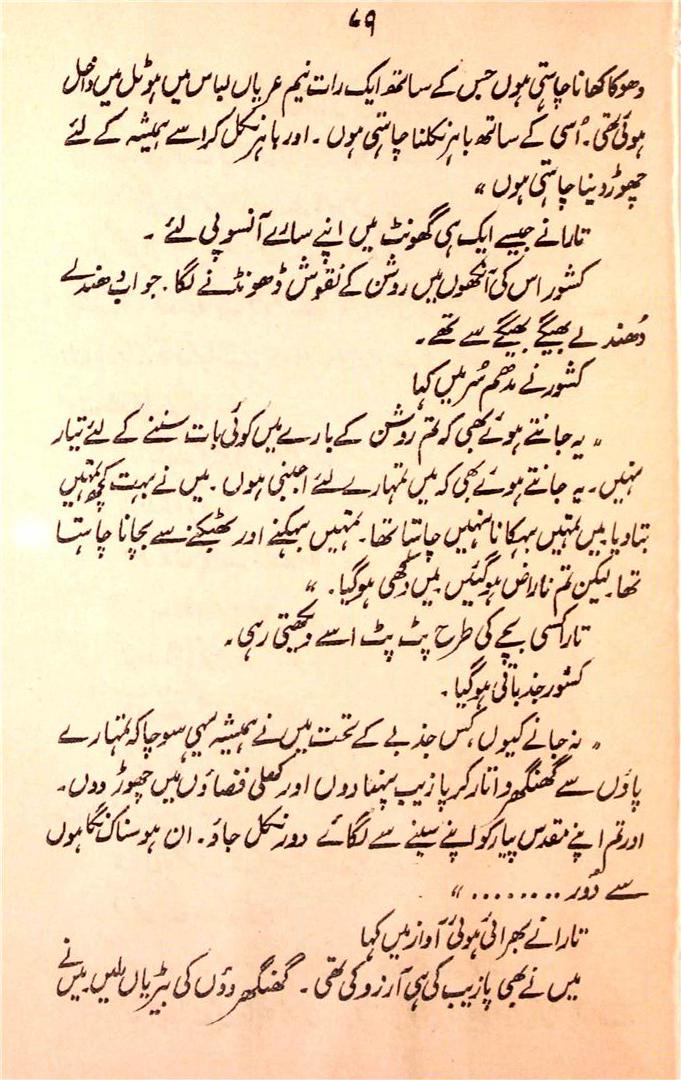 ۷۹
دھوکا کھانا چاہتی ہوں جس کے ساتھ ایک رات نیم عریاں لباس میں ہوٹل میں داخل
ہوئی تھی۔ اُسی کے ساتھ باہر نکلنا چاہتی ہوں۔ اور باہر نکل کر اسے ہمیشہ کے لئے
چھوڑ دینا چاہتی ہوں "
تارا نے جیسے ایک ہی گھونٹ میں اپنے سارے آنسو پی لئے ۔
کشور اس کی آنکھوں میں روشن کے نقوش ڈھونڈنے لگا۔ جو اب دُھندلے
دُھندلے بھیگے بھیگے سے تھے۔
کشور نے مدھم سُر میں کہا
" یہ جانتے ہوئے بھی کہ تم روشن کے بارے میں کوئی بات سننے کے لئے تیار
نہیں۔ یہ جانتے ہوئے بھی کہ میں تمہارے لئے اجنبی ہوں۔ میں نے بہت کچھ تمہیں
بتا دیا۔ میں تمہیں بہکانا نہیں چاہتا تھا۔ تمہیں بہکنے اور بھٹکنے سے بچانا چاہتا
تھا۔ لیکن تم ناراض ہوگئیں میں دُکھی ہوگیا۔ "
تارا کسی بچے کی طرح پٹ پٹ اسے دیکھتی رہی۔
کشور جذباتی ہوگیا۔
" نہ جانے کیوں، کس جذبے کے تحت میں نے ہمیشہ یہی سوچا کہ تمہارے
پاؤں سے گھنگھرو اتار کر پازیب پہنا دوں اور کھلی فضاؤں میں چھوڑ دوں۔
اور تم اپنے مقدس پیار کو اپنے سینے سے لگائے دور نکل جاؤ۔ ان ہوسناک نگاہوں
سے دُور ........ "
تارا نے بھرائی ہوئی آواز میں کہا
میں نے بھی پازیب کی ہی آرزو کی تھی ۔ گھنگھروؤں کی بیڑیاں ملیں میں نے